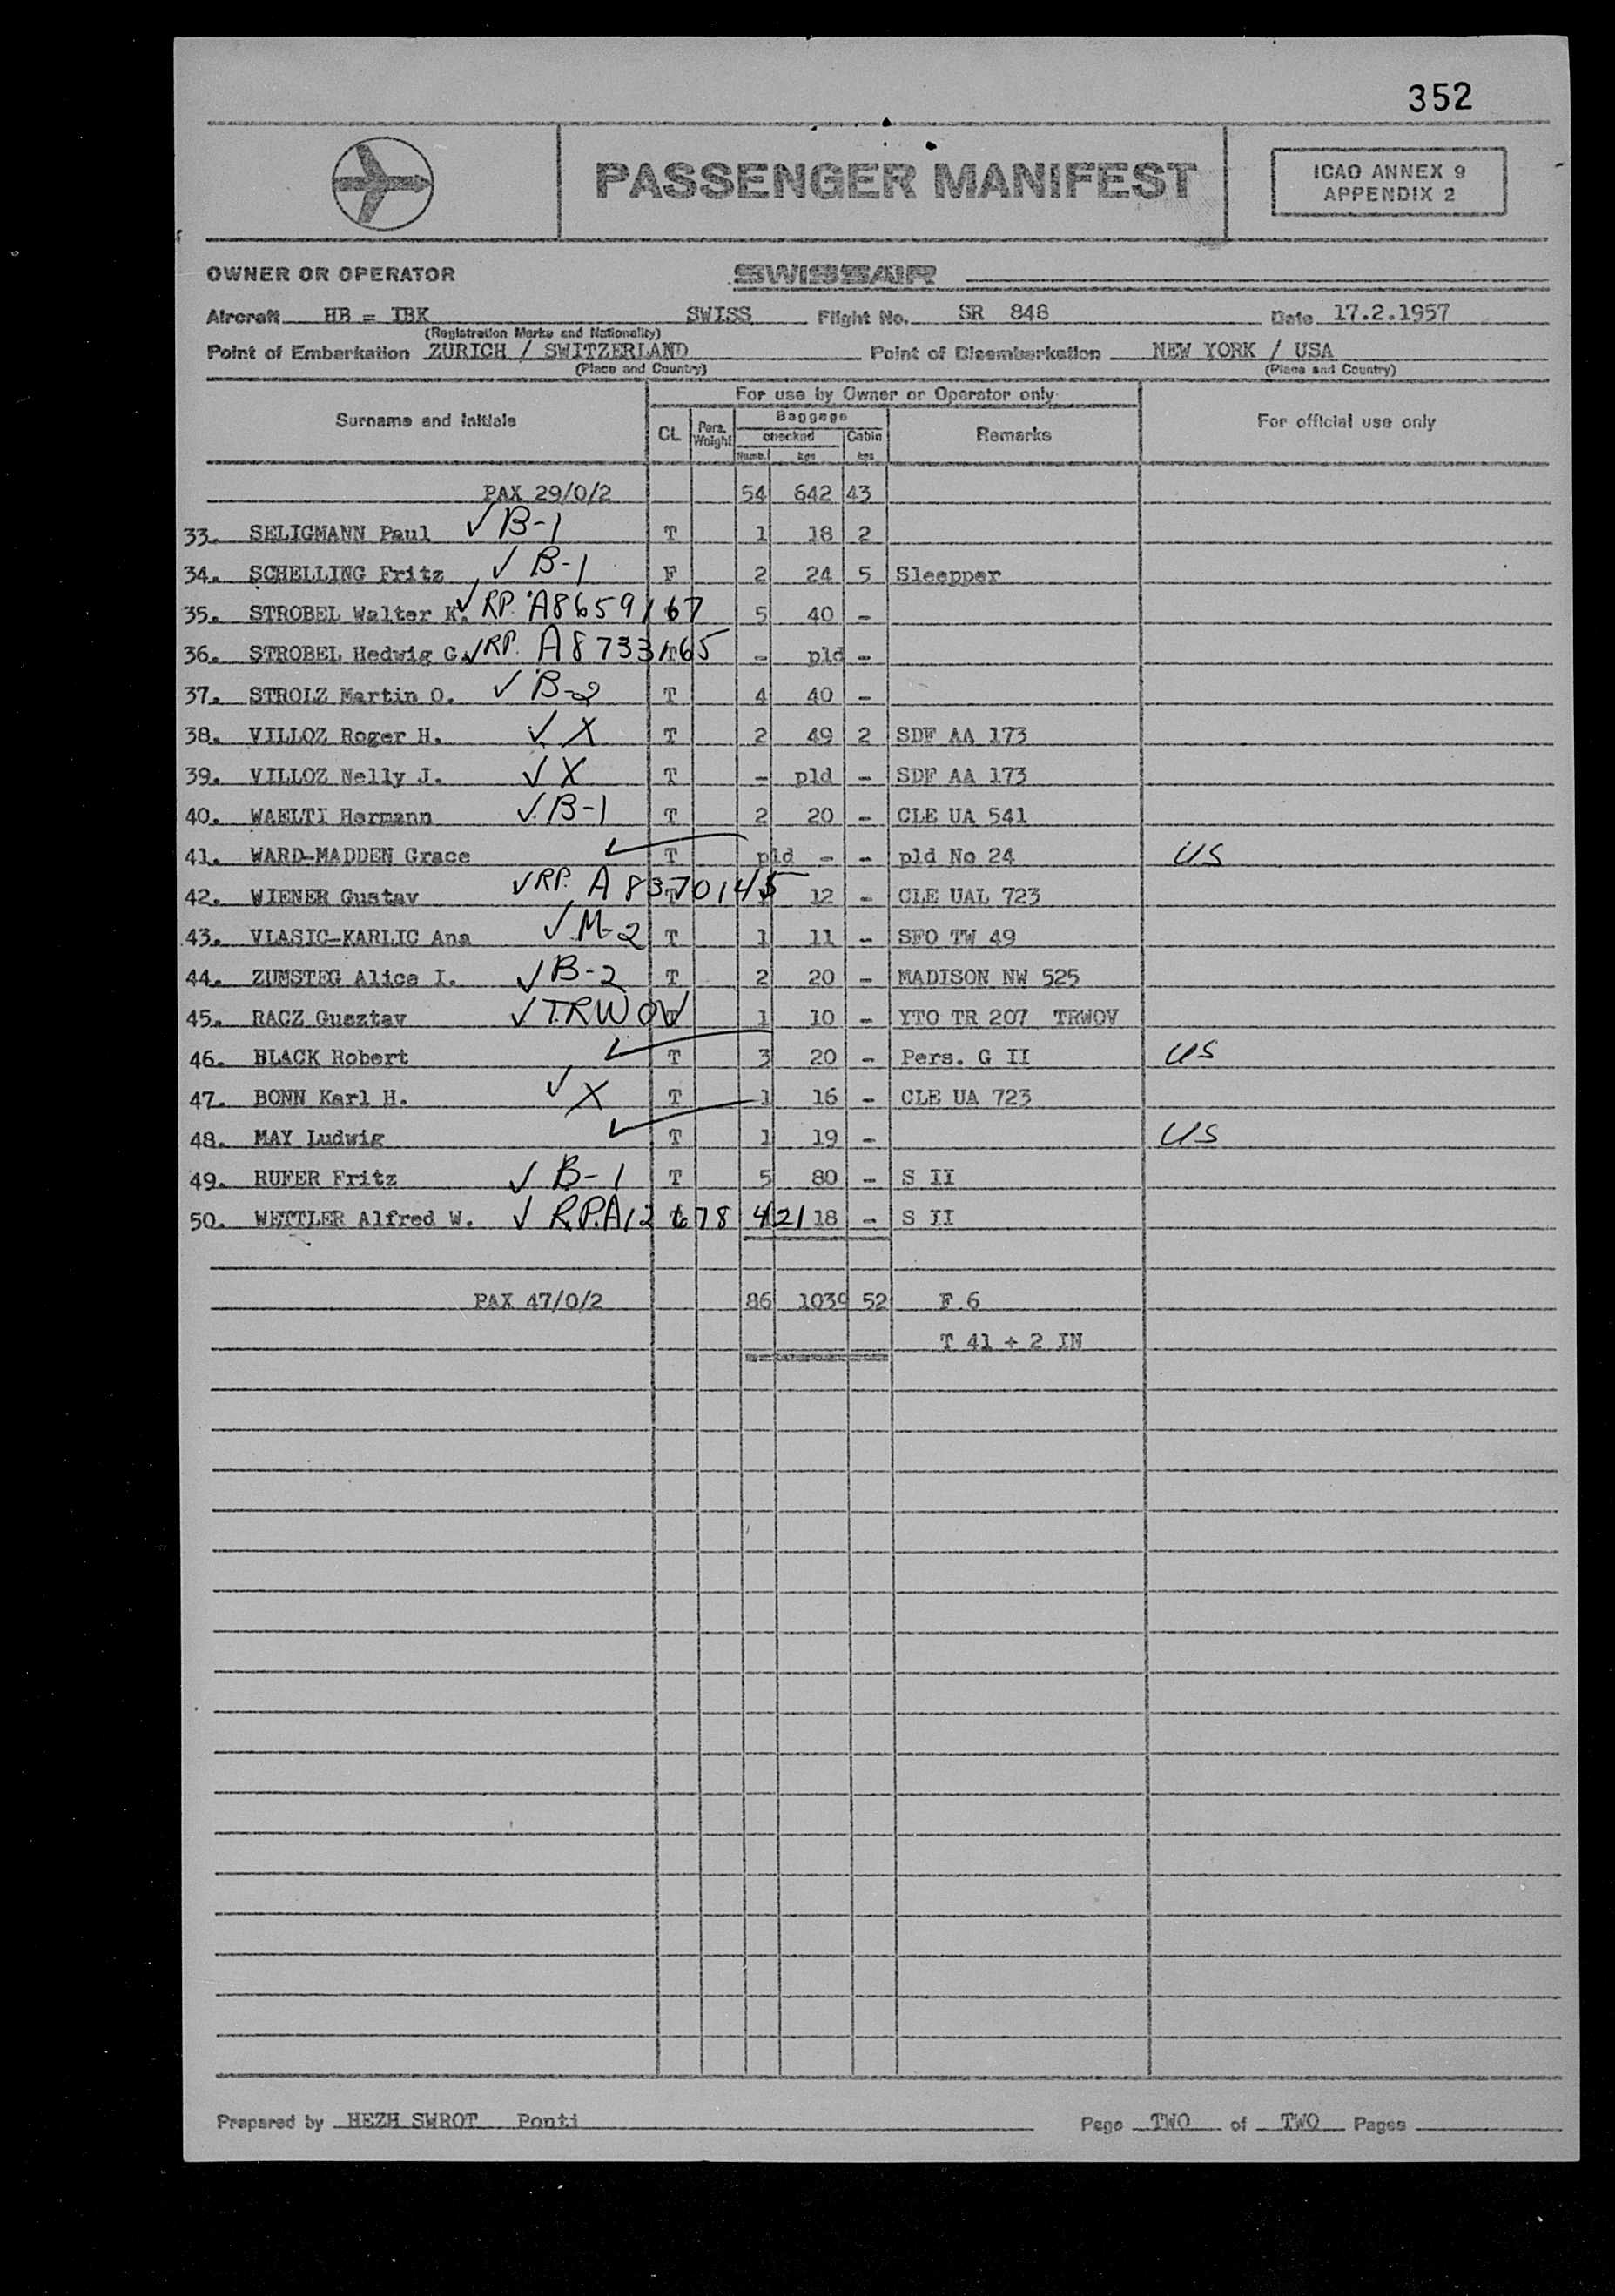 352
PASSENGER MANIFEST
ICAO ANNEX 9
APPENDIX 2
OWNER OR OPERATOR SWISSAIR
Aircraft HB = IBK SWISS Flight No. SR 848 Date 17.2.1957
(Registration Marks and Nationality)
Point of Embarkation ZURICH / SWITZERLAND Point of Disembarkation NEW YORK / USA
(Place and Country) (Place and Country)
For use by Owner or Operator only
Surname and Initials CL Pers. Weight Baggage Remarks For official use only
checked Cabin
Numb. kgs kgs
PAX 29/0/2 54 642 43
33. SELIGMANN Paul ✓ B-1 T 1 18 2
34. SCHELLING Fritz ✓ B-1 F 2 24 5 Sleepper
35. STROBEL Walter K. ✓ RP. A8659167 5 40 -
36. STROBEL Hedwig G. ✓ RP. A8733165 T - pld -
37. STROLZ Martin O. ✓ B-2 T 4 40 -
38. VILLOZ Roger H. ✓ X T 2 49 2 SDF AA 173
39. VILLOZ Nelly J. ✓ X T - pld - SDF AA 173
40. WAELTI Hermann ✓ B-1 T 2 20 - CLE UA 541
41. WARD-MADDEN Grace ✓ T pld - - pld No 24 US
42. WIENER Gustav ✓ RP. A8370145 T 1 12 - CLE UAL 723
43. VLASIC-KARLIC Ana ✓ M-2 T 1 11 - SFO TW 49
44. ZUMSTEG Alice I. ✓ B-2 T 2 20 - MADISON NW 525
45. RACZ Gusztav ✓ T.RWOV T 1 10 - YTO TR 207 TRWOV
46. BLACK Robert ✓ T 3 20 - Pers. G II US
47. BONN Karl H. ✓ X T 1 16 - CLE UA 723
48. MAY Ludwig ✓ T 1 19 - US
49. RUFER Fritz ✓ B-1 T 5 80 - S II
50. WETTLER Alfred W. ✓ R.P.A12 678 421 T 18 - S II
PAX 47/0/2 86 1039 52 F 6
T 41 + 2 IN
Prepared by HEZH SWROT Ponti Page TWO of TWO Pages